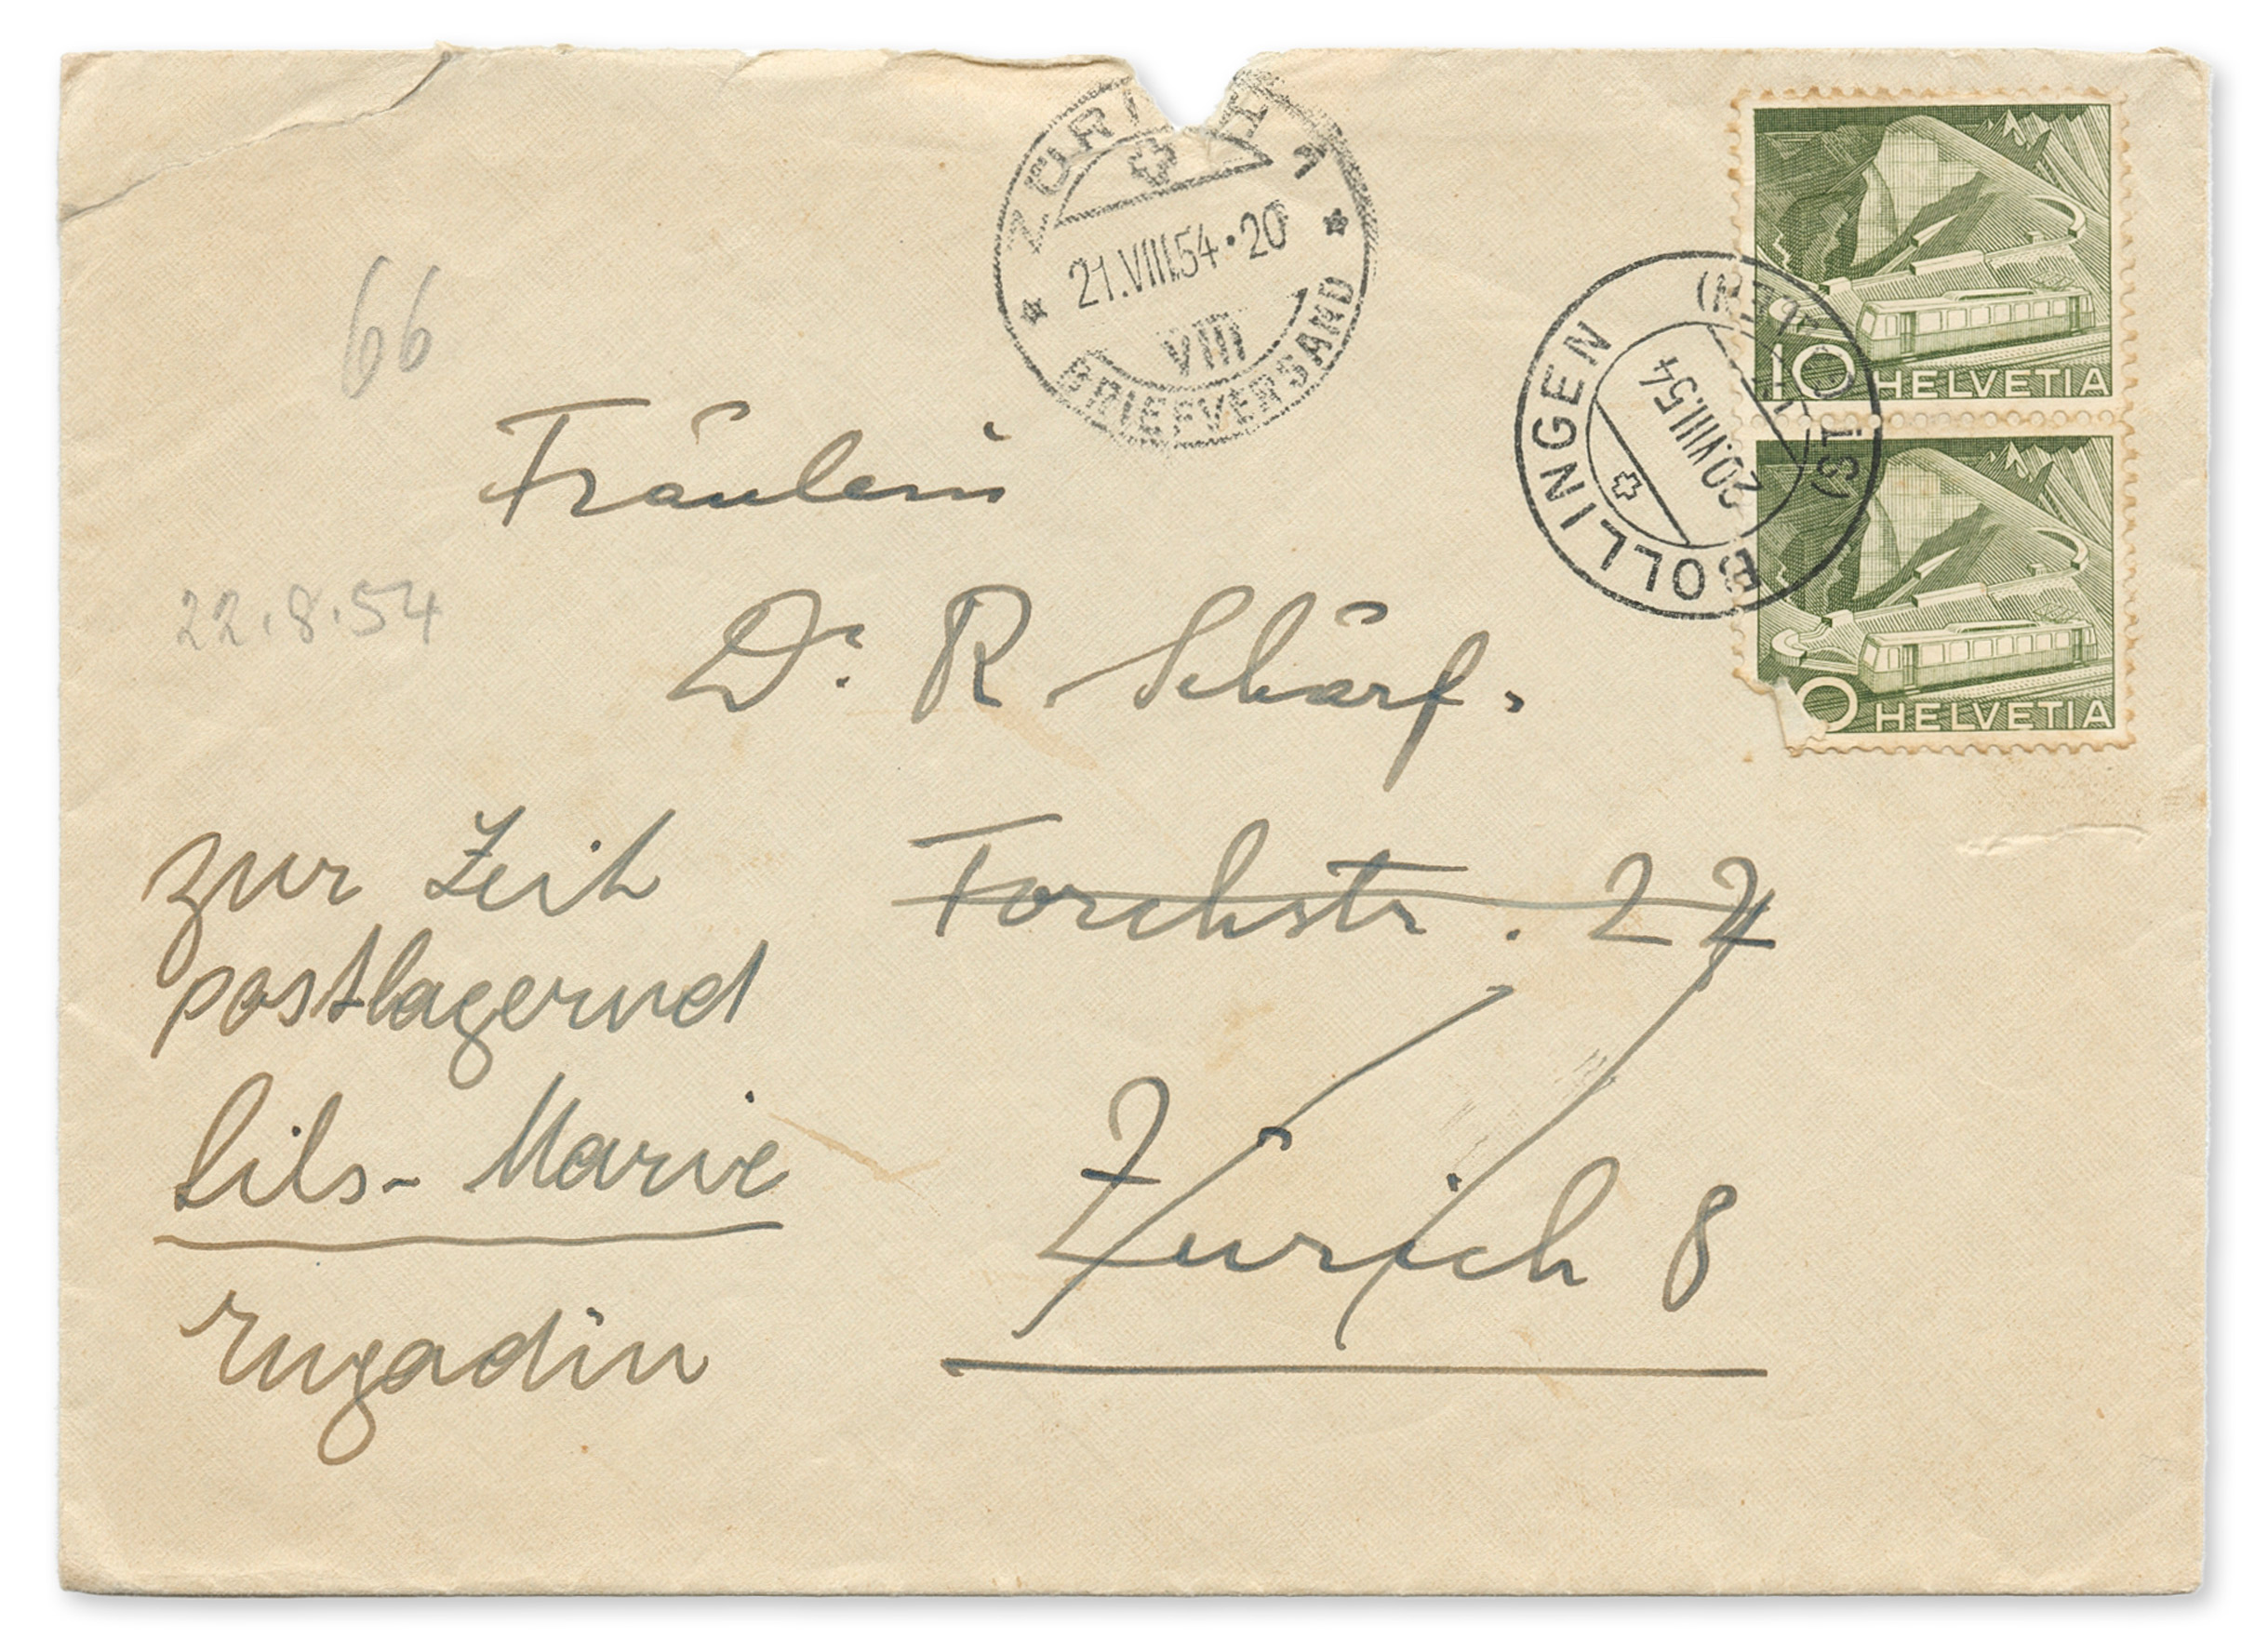 ZÜRICH 1
21.VIII.54·20
VIII
BRIEFVERSAND
10 HELVETIA
BOLLINGEN
20.VIII.54
0 HELVETIA
66
Fräulein
22.8.54
Dr R Schärf.
Forchstr. 22
Zürich 8
zur Zeit
postlagernd
Sils-Marie
Engadin